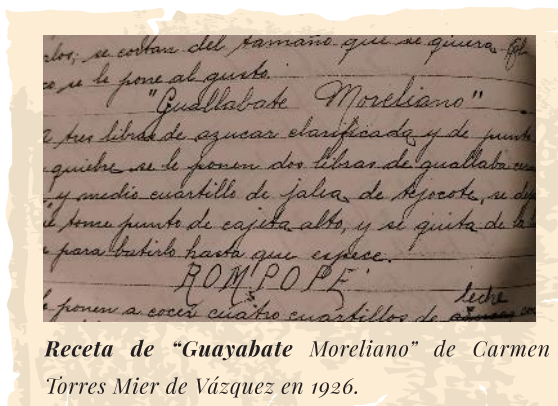 los; se cortan del tamaño que se quiera
co se le pone al gusto.
"Guallabate Moreliano"
tres libras de azucar clarificada y de punto
quiebre se le ponen dos libras de guallaba
y medio cuartillo de jalea de tejocote, se
tome punto de cajeta alto, y se quita de la
para batirlo hasta que espece.
ROMPOPE
leche
ponen a cocer cuatro cuartillos de
Receta de “Guayabate Moreliano” de Carmen
Torres Mier de Vázquez en 1926.